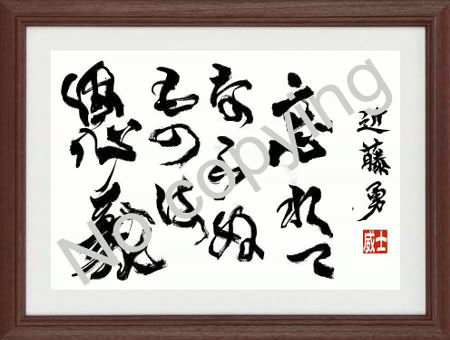 近藤勇
威士
忘れて
ならぬ
ものは
恩義
No copying